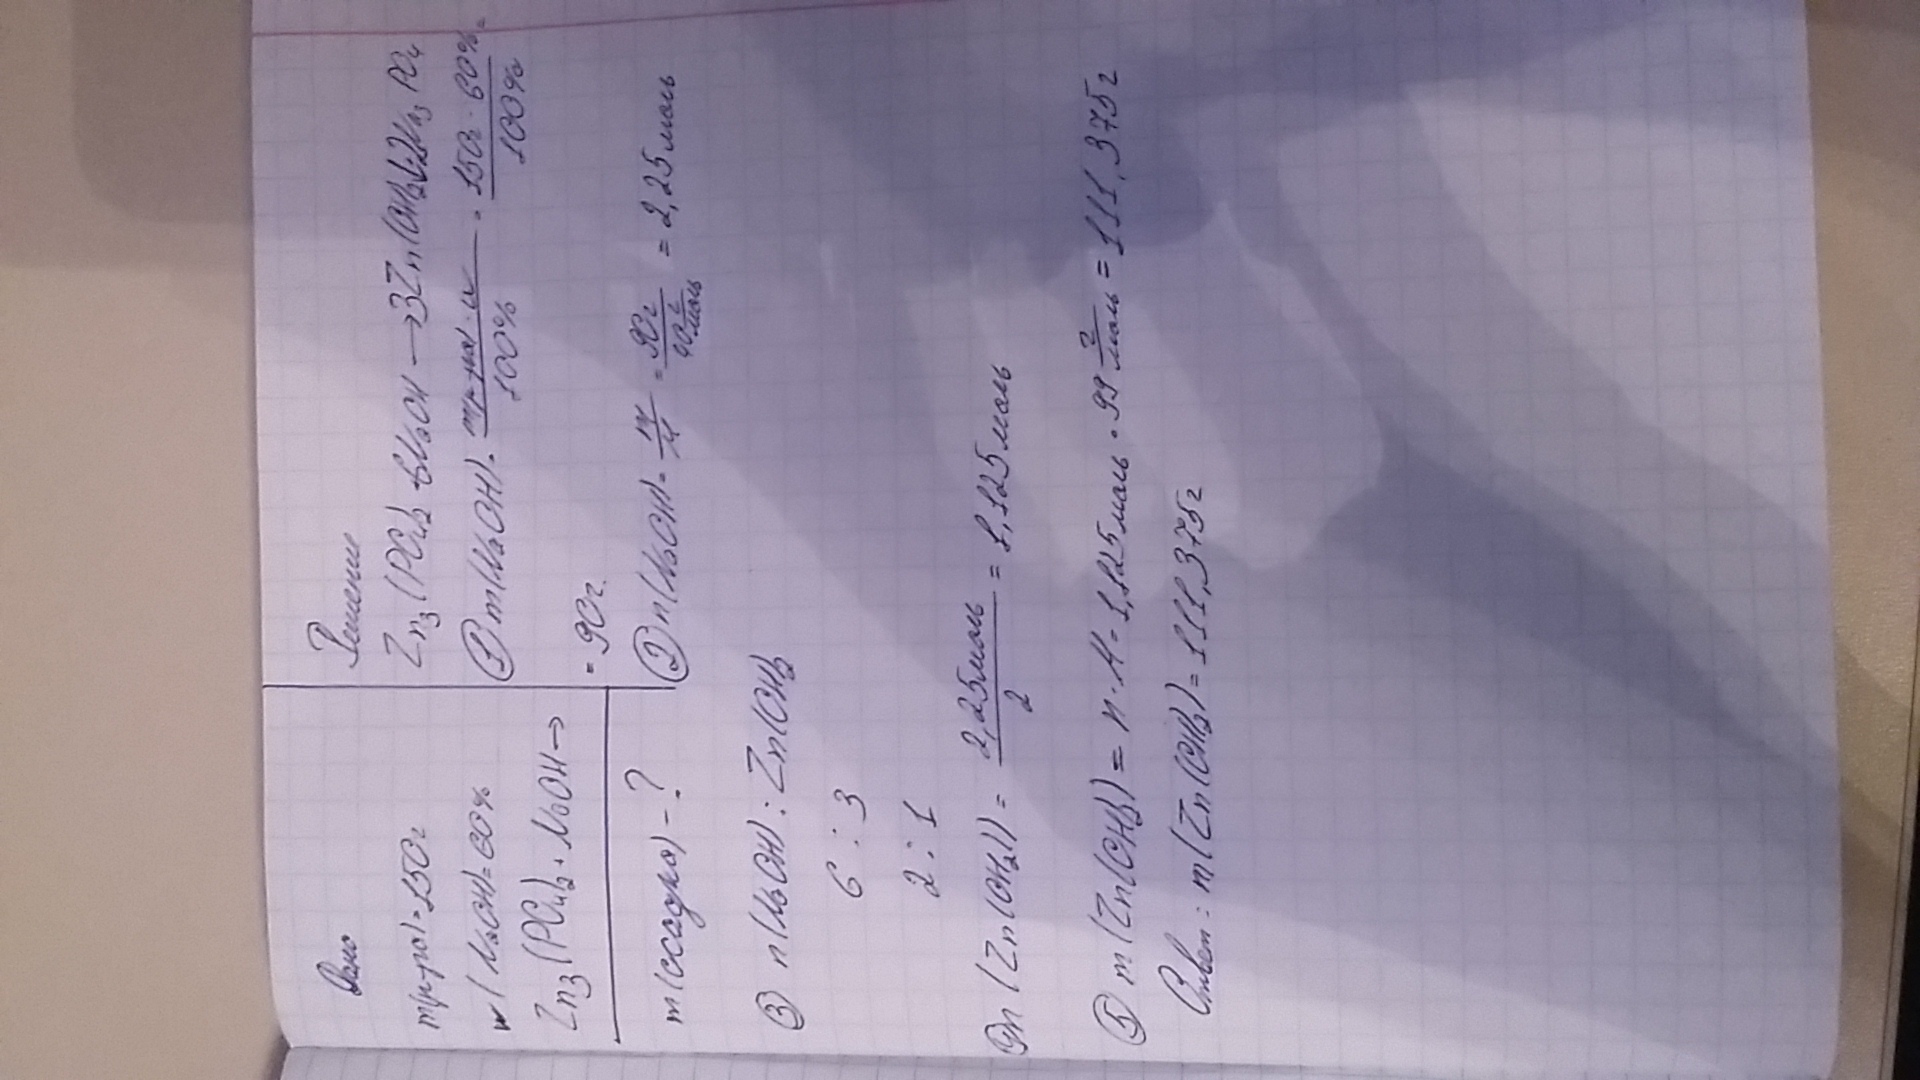 Дано
m(р-ра)=150г
w(NaOH)=60%
Zn3(PO4)2+NaOH→
m(осадка)-?
Решение
Zn3(PO4)2+6NaOH→3Zn(OH)2↓+2Na3PO4
① m(NaOH)= mр-ра·w/100% = 150г·60%/100% =
=90г.
② n(NaOH)= m/M = 90г/40 г/моль = 2,25моль
③ n(NaOH):Zn(OH)2
6 : 3
2 : 1
n(Zn(OH2)) = 2,25моль/2 = 1,125моль
⑤ m(Zn(OH)2) = n·M= 1,125моль·99 г/моль = 111,375г
Ответ: m(Zn(OH)2)=111,375г